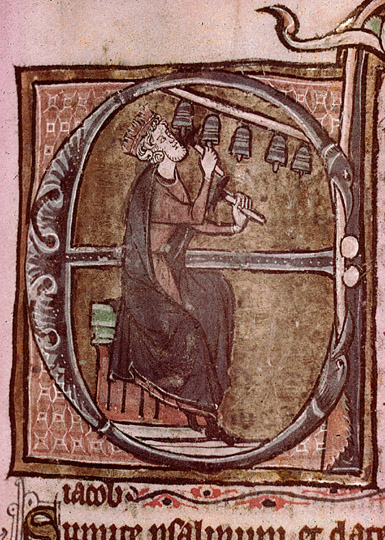 iacob
Sumite psalmum et date